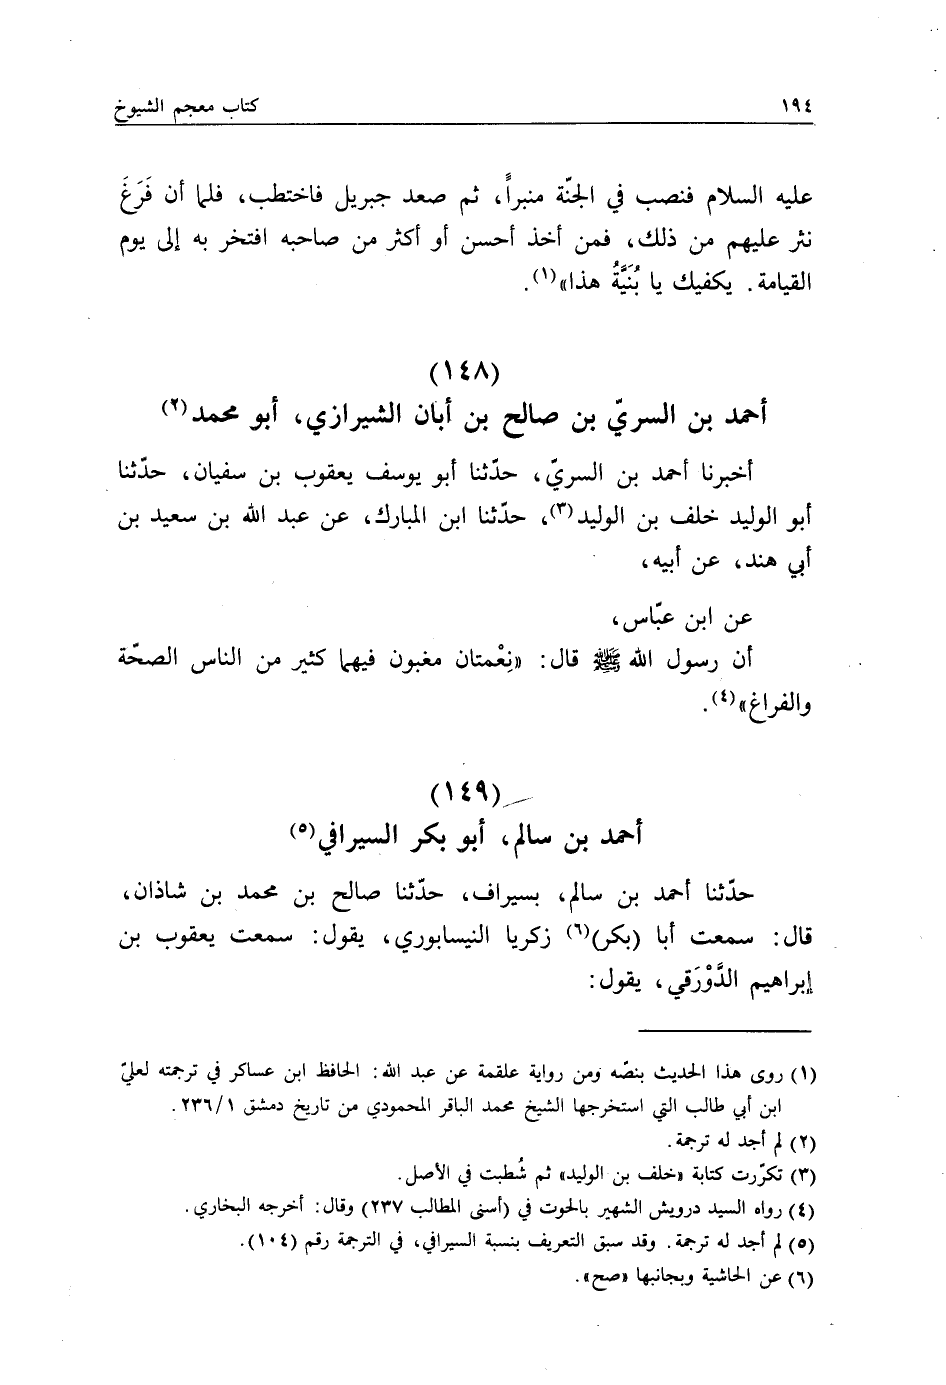 ١٩٤ كتاب معجم الشيوخ
عليه السلام فنصب في الجنّة منبراً، ثم صعد جبريل فاختطب، فلما أن فَرَغَ
نثر عليهم من ذلك، فمن أخذ أحسن أو أكثر من صاحبه افتخر به إلى يوم
القيامة. يكفيك يا بُنَيَّةُ هذا»(١).
(١٤٨)
أحمد بن السريّ بن صالح بن أبان الشيرازي، أبو محمد(٢)
أخبرنا أحمد بن السريّ، حدّثنا أبو يوسف يعقوب بن سفيان، حدّثنا
أبو الوليد خلف بن الوليد(٣)، حدّثنا ابن المبارك، عن عبد الله بن سعيد بن
أبي هند، عن أبيه،
عن ابن عبّاس،
أن رسول الله ﷺ قال: «نِعْمتان مغبون فيهما كثير من الناس الصحّة
والفراغ»(٤).
(١٤٩)
أحمد بن سالم، أبو بكر السيرافي(٥)
حدّثنا أحمد بن سالم، بسيراف، حدّثنا صالح بن محمد بن شاذان،
قال: سمعت أبا (بكر)(٦) زكريا النيسابوري، يقول: سمعت يعقوب بن
إبراهيم الدَّوْرَقي، يقول:
(١) روى هذا الحديث بنصّه ومن رواية علقمة عن عبد الله: الحافظ ابن عساكر في ترجمته لعليّ
ابن أبي طالب التي استخرجها الشيخ محمد الباقر المحمودي من تاريخ دمشق ٢٣٦/١.
(٢) لم أجد له ترجمة.
(٣) تكرّرت كتابة «خلف بن الوليد» ثم شُطبت في الأصل.
(٤) رواه السيد درويش الشهير بالحوت في (أسنى المطالب ٢٣٧) وقال: أخرجه البخاري.
(٥) لم أجد له ترجمة. وقد سبق التعريف بنسبة السيرافي، في الترجمة رقم (١٠٤).
(٦) عن الحاشية وبجانبها «صح».